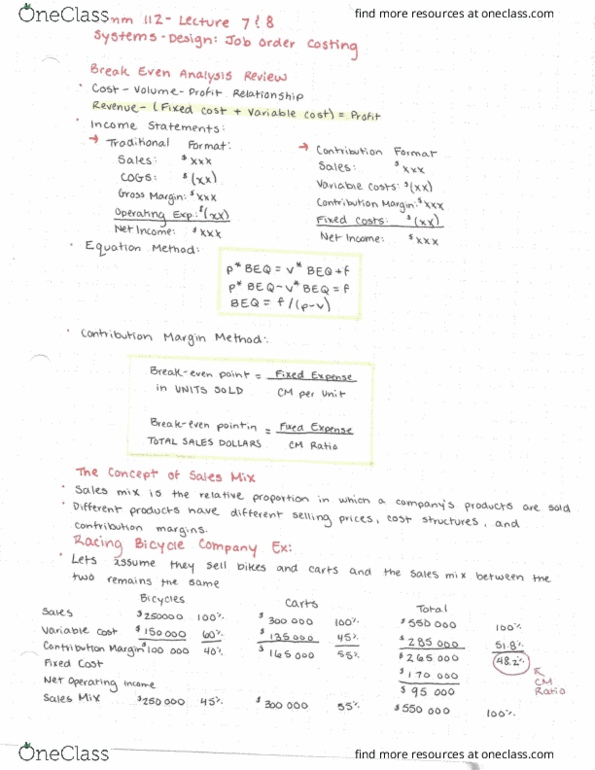 OneClass
find more resources at oneclass.com
mm 112- Lecture 7 & 8
Systems-Design: Job Order Costing
Break Even Analysis Review
· Cost - Volume- Profit Relationship
Revenue- (Fixed cost + Variable cost) = Profit
· Income Statements:
→ Traditional Format:
Sales: $xxx
COGS: $(xx)
Gross Margin: $xxx
Operating Exp: $(xx)
Net Income: $xxx
→ Contribution Format
Sales: $xxx
Variable Costs: $(xx)
Contribution Margin: $xxx
Fixed Costs: $(xx)
Net Income: $xxx
· Equation Method:
p* BEQ = v* BEQ + f
p* BEQ - v* BEQ = f
BEQ = f/(p-v)
· Contribution Margin Method:
Break-even point = Fixed Expense
in UNITS SOLD CM per Unit
Break-even point in = Fixed Expense
TOTAL SALES DOLLARS CM Ratio
The Concept of Sales Mix
· Sales mix is the relative proportion in which a company's products are sold
· Different products have different selling prices, cost structures, and
contribution margins.
Racing Bicycle Company Ex:
· Lets assume they sell bikes and carts and the sales mix between the
two remains the same
Bicycles Carts Total
Sales $250000 100% $300 000 100% $550 000 100%
Variable Cost $150000 60% $135000 45% $285 000 51.8%
Contribution Margin $100 000 40% $165 000 55% $265 000 48.2%
Fixed Cost $170 000
Net Operating Income $95 000
CM
Ratio
Sales Mix $250 000 45% $300 000 55% $550 000 100%
OneClass
find more resources at oneclass.com